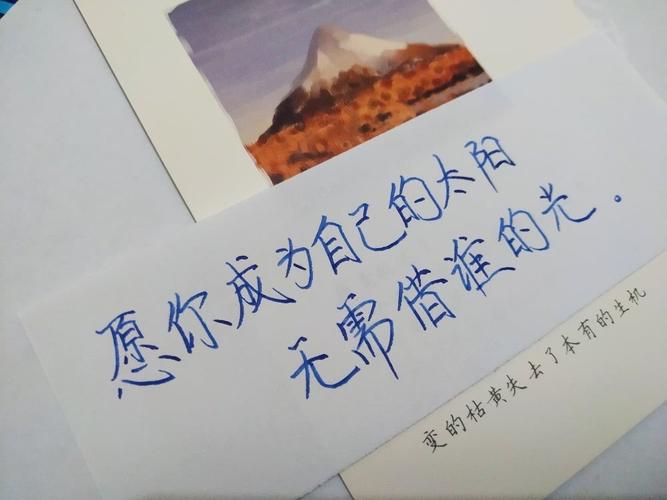 愿你成为自己的太阳
无需借谁的光.
变的枯黄失去了本有的生机